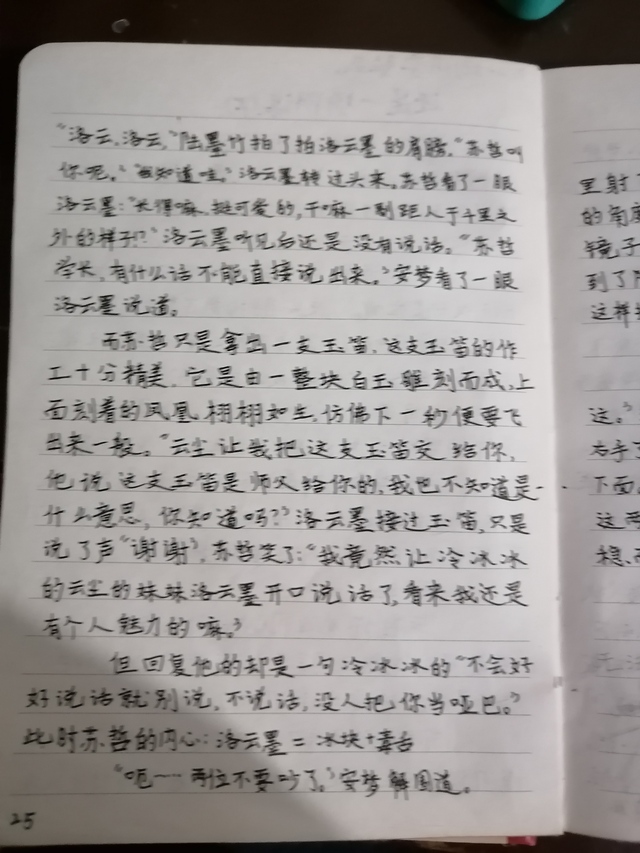 “洛云，洛云，”陆墨竹拍了拍洛云墨的肩膀，“苏哲叫
你呢。”“我知道哇。”洛云墨转过头来。苏哲看了一眼
洛云墨：“长得嘛，挺可爱的，干嘛一副距人于千里之
外的样子！？”洛云墨听见后还是没有说话。“苏哲
学长，有什么话不能直接说出来。”安梦看了一眼
洛云墨说道。
而苏哲只是拿出一支玉笛，这支玉笛的作
工十分精美，它是由一整块白玉雕刻而成，上
面刻着的凤凰栩栩如生，仿佛下一秒便要飞
出来一般。“云尘让我把这支玉笛交给你，
他说这支玉笛是师父给你的，我也不知道是
什么意思，你知道吗？”洛云墨接过玉笛，只是
说了声“谢谢”，苏哲笑了：“我竟然让冷冰冰
的云尘的妹妹洛云墨开口说话了，看来我还是
有个人魅力的嘛。”
但回复他的却是一句冷冰冰的“不会好
好说话就别说，不说话，没人把你当哑巴。”
此时苏哲的内心：洛云墨＝冰块＋毒舌
“呃……两位不要吵了。”安梦解围道。
25
里射
的角度
镜子
到了
这样
这。”
右手
下面
这两
稳，而